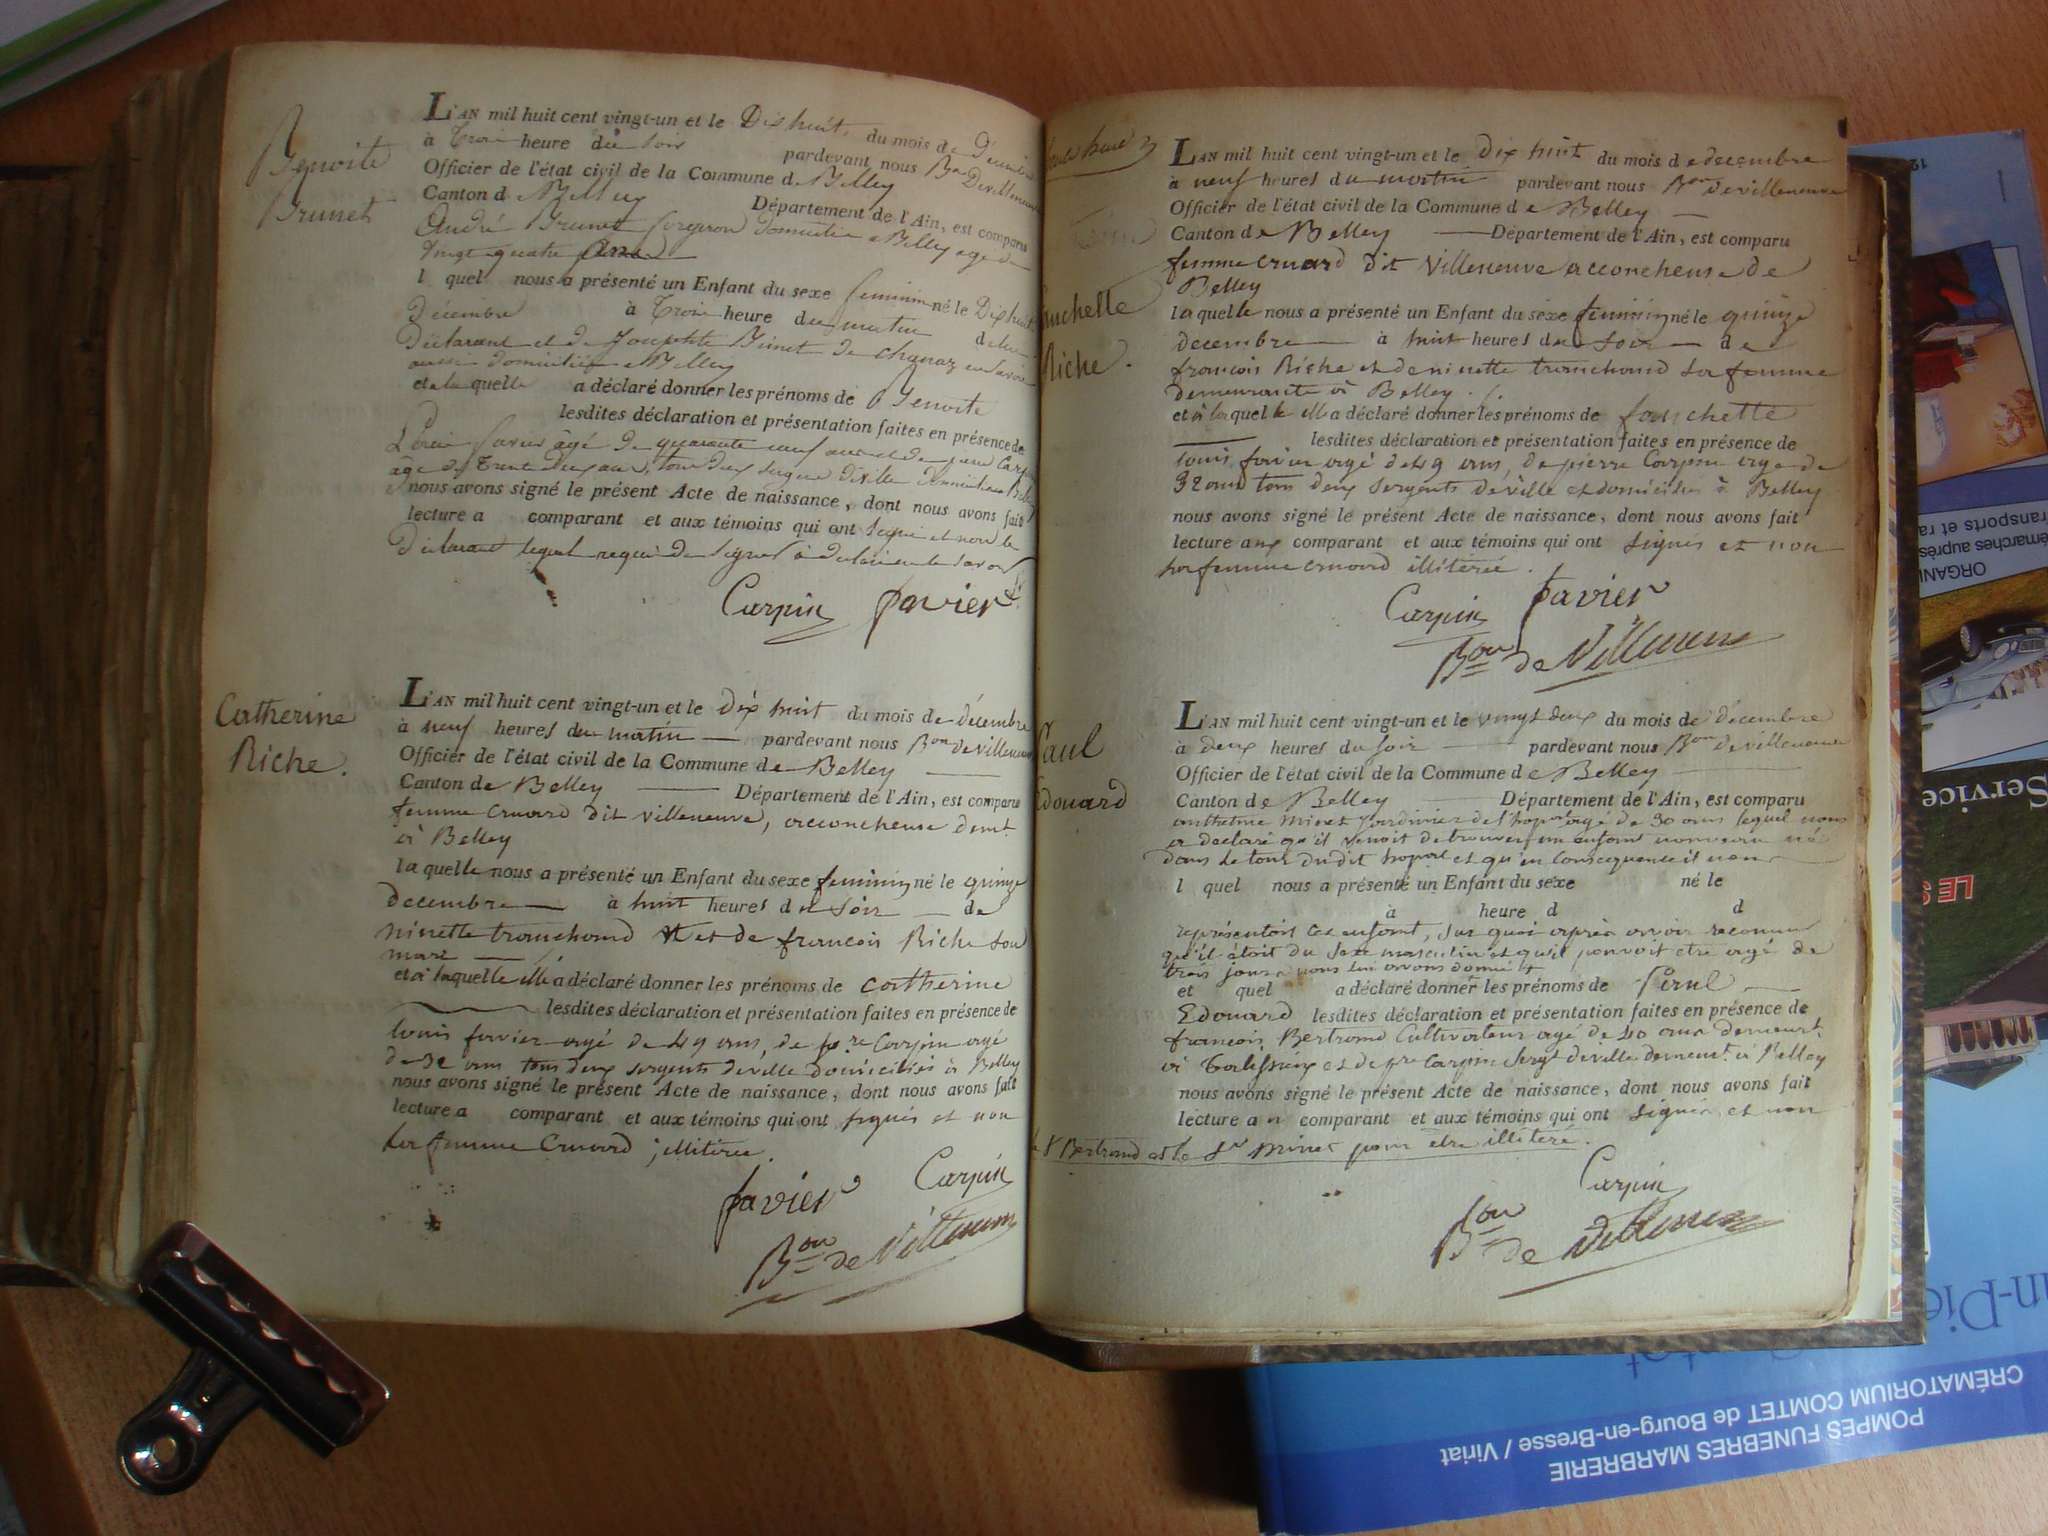 Benoite
Brunet
L'AN mil huit cent vingt-un et le Dix huit du mois de Décembre
à Trois heure du soir pardevant nous Bon Devilleneuve
Officier de l'état civil de la Commune de Belley
Canton d Belley Département de l'Ain, est comparu
André Brunet forgeron domicilié a Belley age de
vingt quatre ans
l quel nous a présenté un Enfant du sexe feminin né le Dix huit
Décembre à Trois heure du matin de lui
Déclarant et de Josephte Binet de chanaz en Savoie
aussi domiciliée a Belley
et a laquelle a déclaré donner les prénoms de Benoite
lesdites déclaration et présentation faites en présence de
Louis favier âgé de quarante neuf ans et de
âgé de Trente deux ans, tous deux sergens de ville domiciliés a Belley
nous avons signé le présent Acte de naissance, dont nous avons fait
lecture a comparant et aux témoins qui ont signé et non le
Déclarant lequel requis de signer a déclaré ne le savoir
Carpin favier
Catherine
Riche.
L'AN mil huit cent vingt-un et le Dix huit du mois de décembre
à neuf heures du matin pardevant nous Bon de villeneuve
Officier de l'état civil de la Commune de Belley
Canton de Belley Département de l'Ain, est comparu
femme cruard dit villeneuve, accoucheuse demt
à Belley
la quelle nous a présenté un Enfant du sexe feminin né le quinze
decembre à huit heures du soir de
ninette tranchand et de francois Riche son
mari
et à laquelle elle a déclaré donner les prénoms de catherine
lesdites déclaration et présentation faites en présence de
louis favier agé de 49 ans, de pre Carpin agé
de 32 ans tous deux sergents de ville domiciliés à Belley
nous avons signé le présent Acte de naissance, dont nous avons fait
lecture a comparant et aux témoins qui ont signés et non
la femme Cruard, illitérée.
favier Carpin
Bon de Villeneuve
fanchette
Riche.
L'AN mil huit cent vingt-un et le Dix huit du mois de decembre
à neuf heures du matin pardevant nous Bon de villeneuve
Officier de l'état civil de la Commune de Belley
Canton de Belley Département de l'Ain, est comparu
femme cruard dit villeneuve accoucheuse de
Belley
la quelle nous a présenté un Enfant du sexe feminin né le quinze
decembre à huit heures du soir de
francois Riche et de ninette tranchand sa femme
demeurante à Belley.
et à laquelle elle a déclaré donner les prénoms de fanchette
lesdites déclaration et présentation faites en présence de
louis favier agé de 49 ans, de pierre Carpin age de
32 ans tous deux sergents de ville et domiciliés à Belley
nous avons signé le présent Acte de naissance, dont nous avons fait
lecture aux comparant et aux témoins qui ont signés et non
la femme cruard illitérée.
Carpin favier
Bon de Villeneuve
Paul
Edouard
L'AN mil huit cent vingt-un et le vingt deux du mois de décembre
à deux heures du soir pardevant nous Bon de villeneuve
Officier de l'état civil de la Commune de Belley
Canton de Belley Département de l'Ain, est comparu
anthelme minet jardinier de l'hopal agé de 30 ans lequel nous
a declaré qu'il venoit de trouver un enfant nouveau né
dans le tour du dit hopal et qu'en consequence il nous
l quel nous a présenté un Enfant du sexe né le
à heure d d
représentoit cet enfant, sur quoi après avoir reconnu
qu'il étoit du sexe masculin et qu'il pouvoit etre agé de
trois jours nous lui avons donné
et quel a déclaré donner les prénoms de Paul
Edouard lesdites déclaration et présentation faites en présence de
francois Bertrand Cultivateur agé de 40 ans demeurt
à talissieux et de pre Carpin sergt de ville demeurt à Belley
nous avons signé le présent Acte de naissance, dont nous avons fait
lecture a u comparant et aux témoins qui ont signés, et non
le Sr Bertrand et le Sr minet pour être illiteré.
Carpin
Bon de Villeneuve
Service
LE S
ORGANI
émarches auprès
ransports et ra
an-Pie
POMPES FUNEBRES MARBRERIE
CRÉMATORIUM COMTET de Bourg-en-Bresse / Viriat